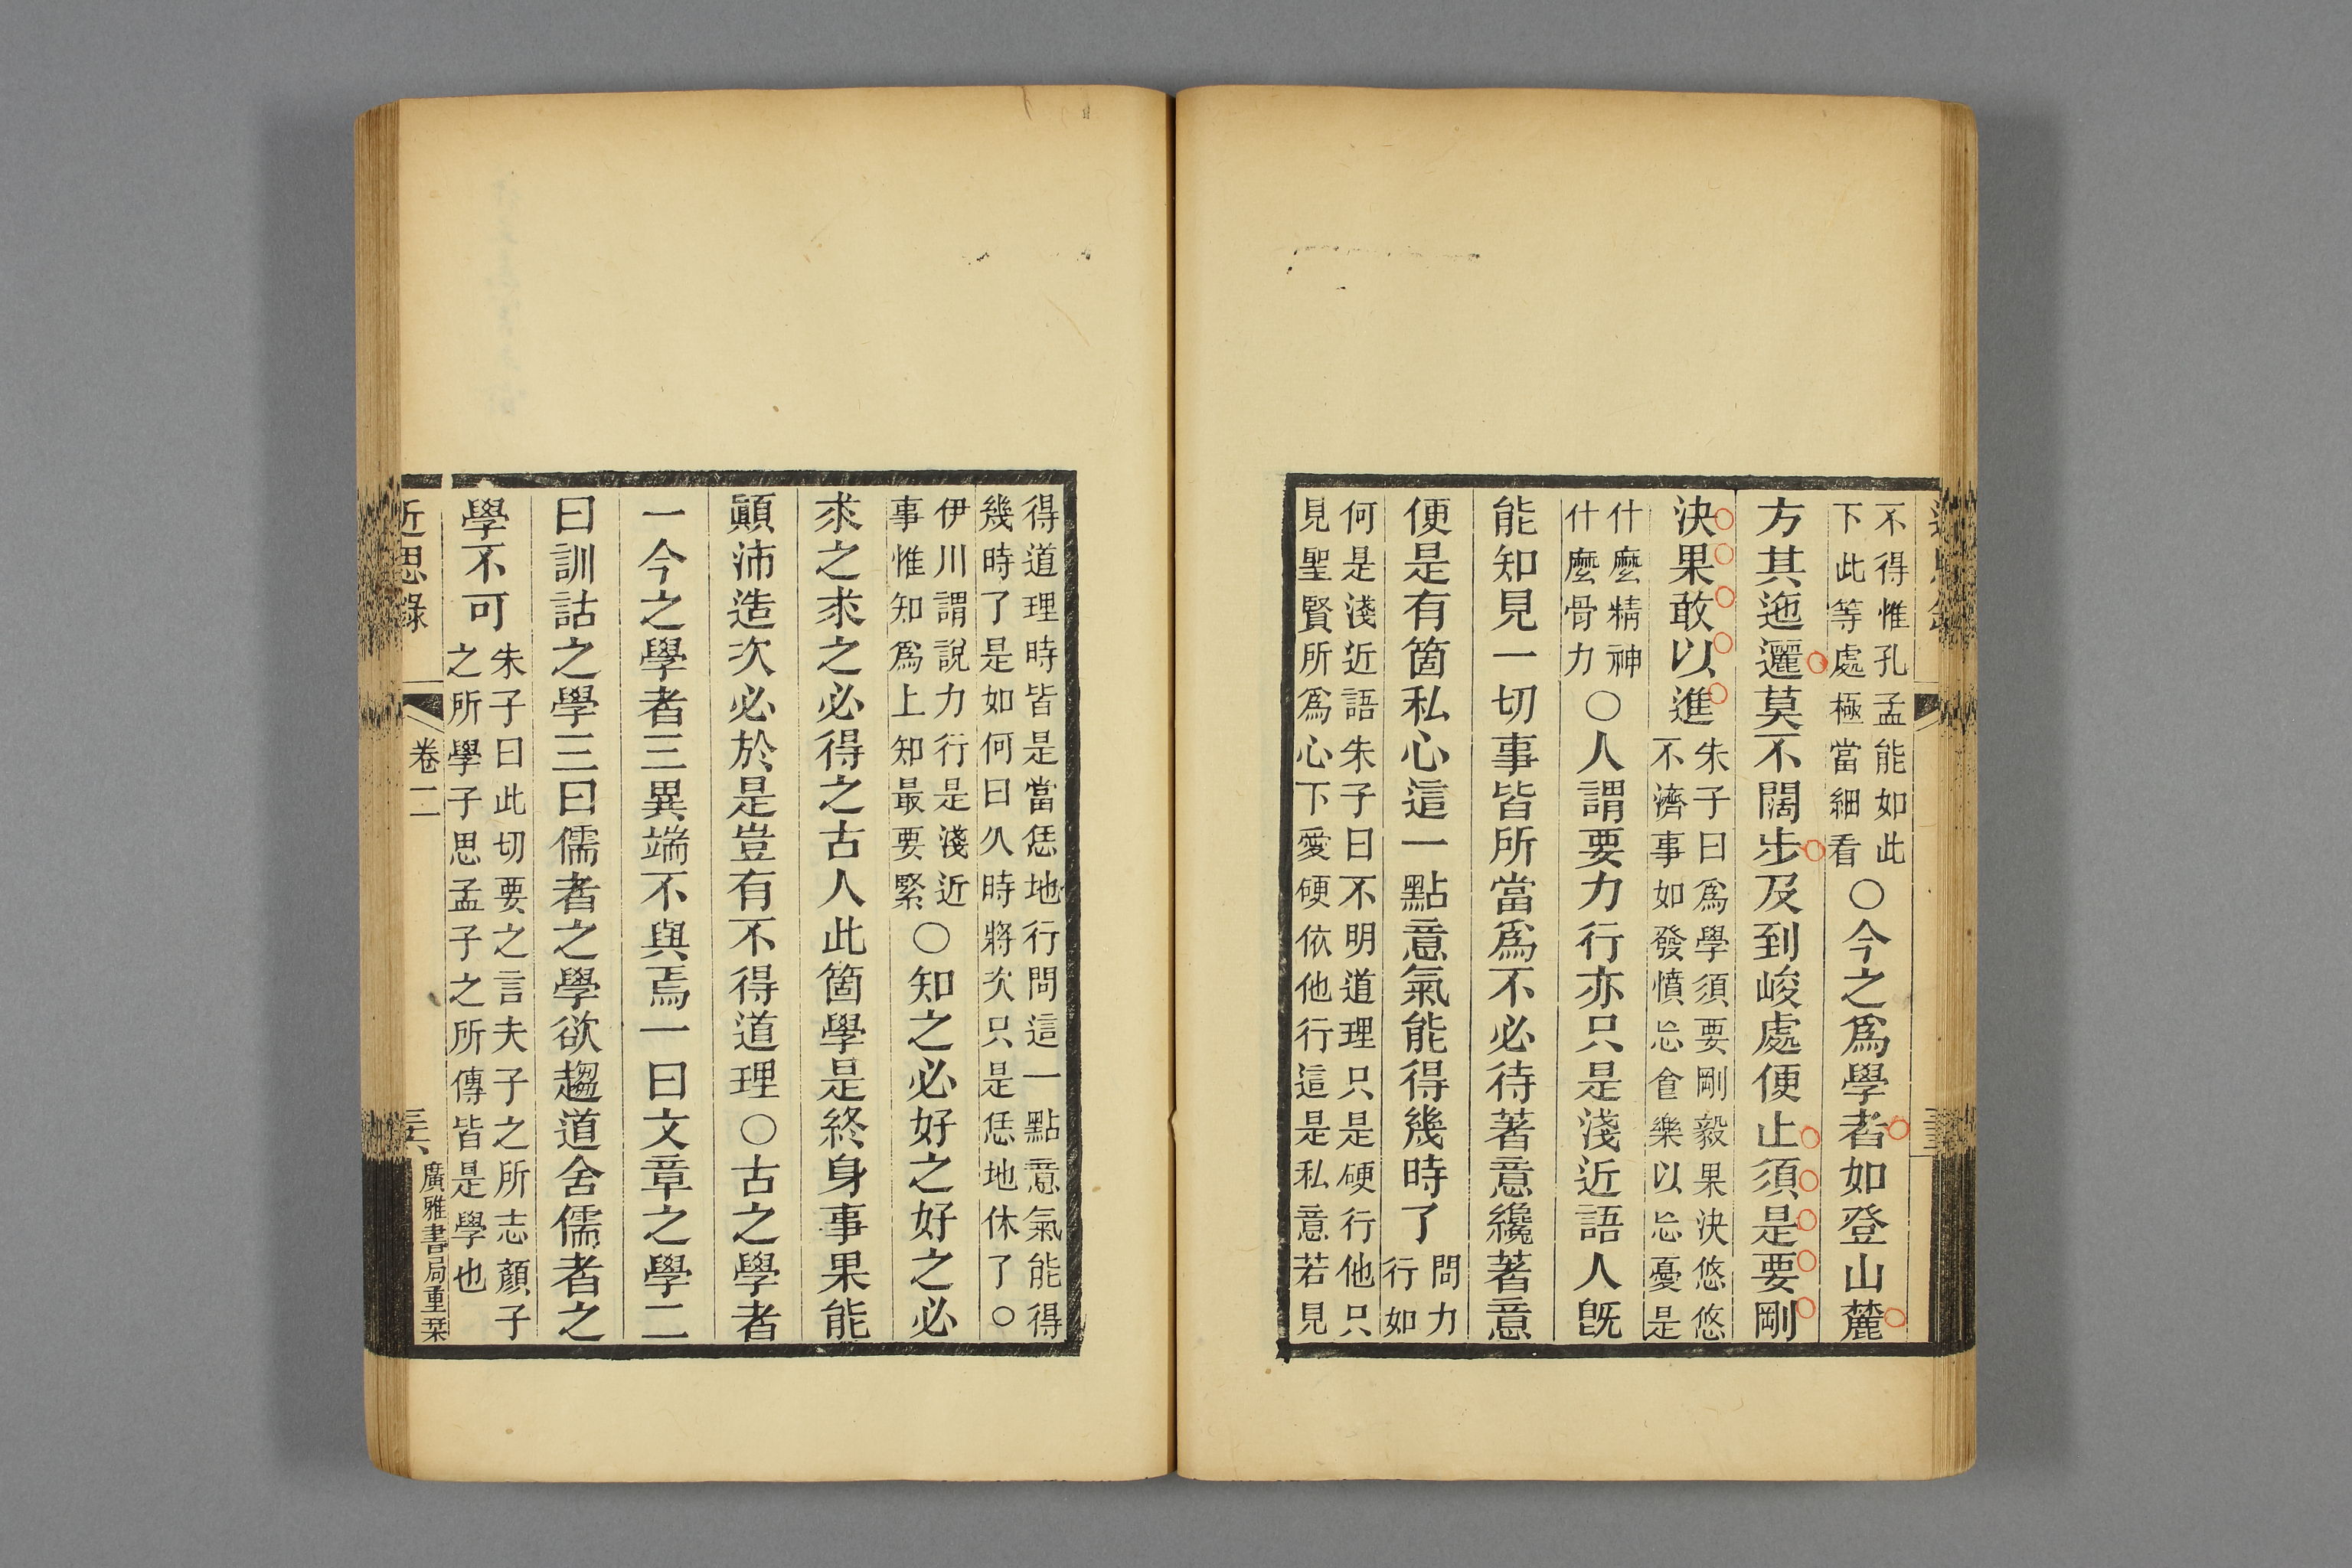 不得惟孔孟能如此
下此等處極當細看
○今之爲學者如登山麓
方其迤邐莫不闊步及到峻處便止須是要剛
決果敢以進
朱子曰爲學須要剛毅果決悠悠
不濟事如發憤忘食樂以忘憂是
什麼精神
什麼骨力
○人謂要力行亦只是淺近語人既
能知見一切事皆所當爲不必待著意纔著意
便是有箇私心這一點意氣能得幾時了
問力
行如
何是淺近語朱子曰不明道理只是硬行他只
見聖賢所爲心下愛硬依他行這是私意若見
得道理時皆是當恁地行問這一點意氣能得
幾時了是如何曰久時將次只是恁地休了○
伊川謂說力行是淺近
事惟知爲上知最要緊
○知之必好之好之必
求之求之必得之古人此箇學是終身事果能
顚沛造次必於是豈有不得道理○古之學者
一今之學者三異端不與焉一曰文章之學二
曰訓詁之學三曰儒者之學欲趨道舍儒者之
學不可
朱子曰此切要之言夫子之所志顏子
之所學子思孟子之所傳皆是學也
近思錄
卷二
廣雅書局重栞